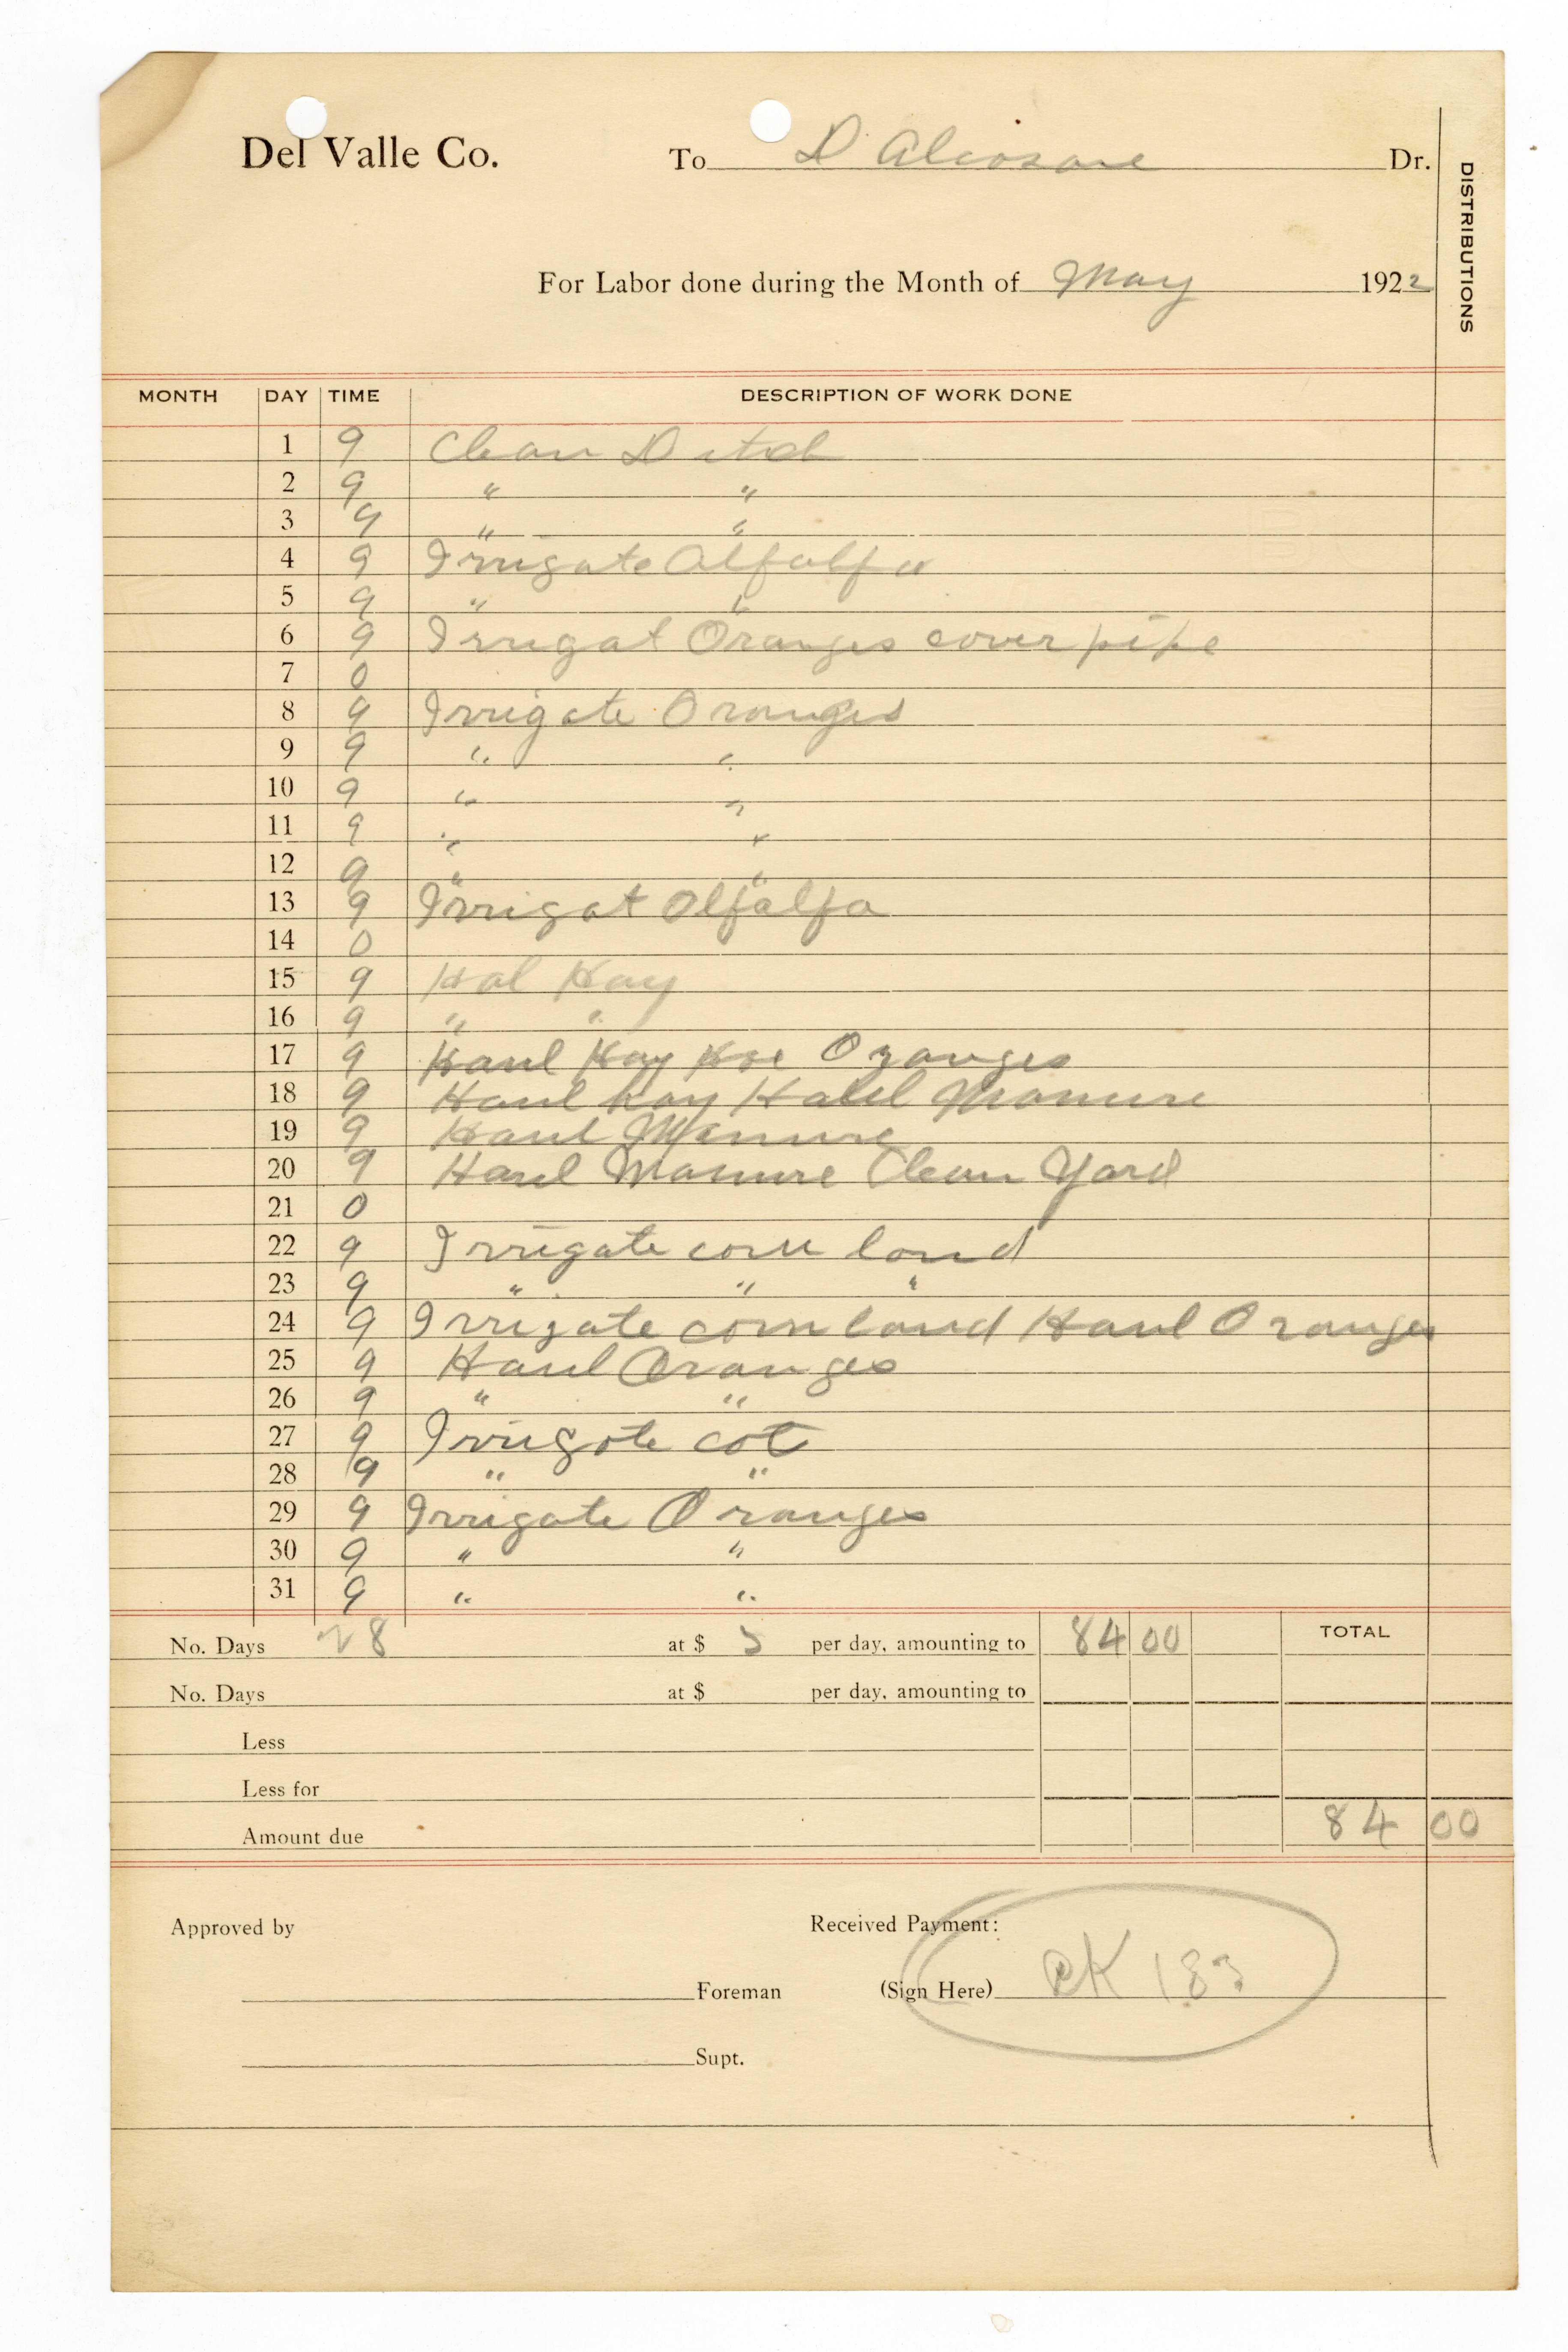 Del Valle Co. To D Dr.
For Labor done during the Month of May 1922
DISTRIBUTIONS
MONTH DAY TIME DESCRIPTION OF WORK DONE
1 9 Clean Ditch
2 9 " "
3 9 " "
4 9 Irrigate Alfalfa
5 9 " "
6 9 Irrigat Oranges cover pipe
7 0
8 9 Irrigate Oranges
9 9 " "
10 9 " "
11 9 " "
12 9 " "
13 9 Irrigat Olfalfa
14 0
15 9 Hal Hay
16 9 " "
17 9 Haul Hay Hoe Oranges
18 9 Haul hay Manure
19 9 Haul Manure
20 9 Haul Manure Clean Yard
21 0
22 9 Irrigate corn land
23 9 " " "
24 9 Irrigate corn land Haul Oranges
25 9 Haul Oranges
26 9 " "
27 9 Irrigate cot
28 9 " "
29 9 Irrigate Oranges
30 9 " "
31 9 " "
No. Days 28 at $ 3 per day, amounting to 84 00 TOTAL
No. Days at $ per day, amounting to
Less
Less for
Amount due 84 00
Approved by Received Payment:
Foreman (Sign Here) 183
Supt.